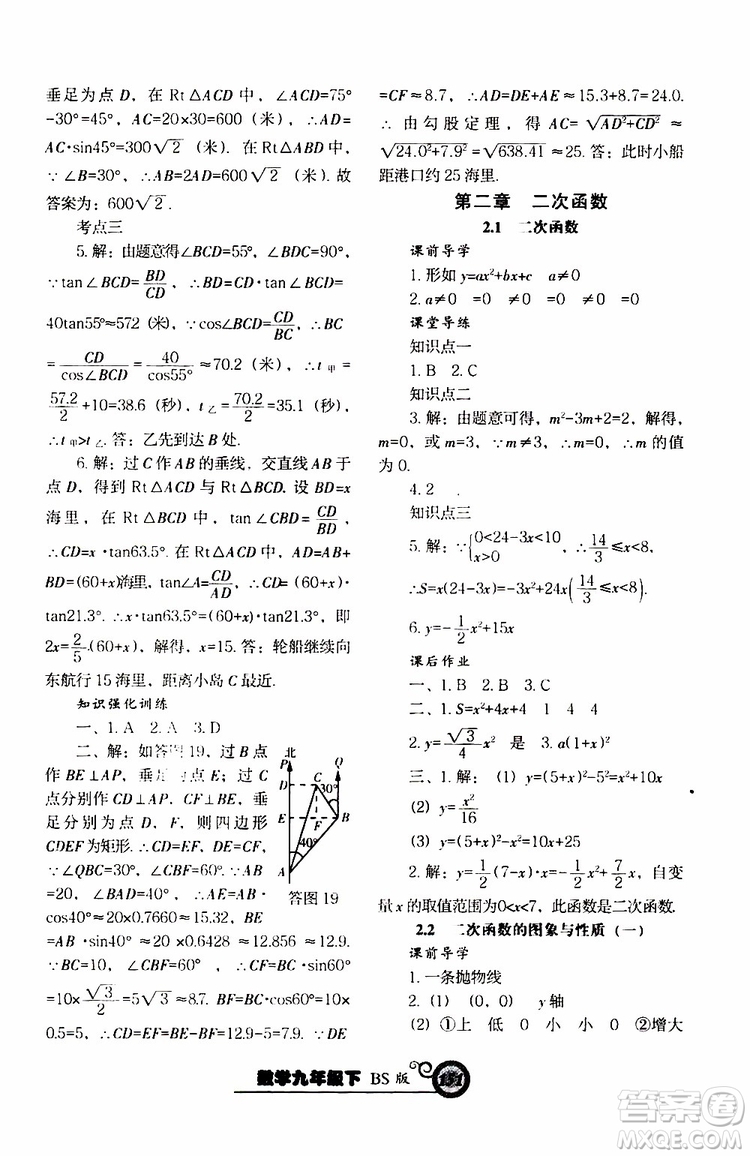 垂足为点 D，在 Rt△ACD 中，∠ACD=75°
-30°=45°，AC=20×30=600（米），∴AD=
AC·sin45°=300√2（米）. 在 Rt△ABD 中，
∵∠B=30°，∴AB=2AD=600√2（米）. 故
答案为：600√2.
考点三
5. 解：由题意得∠BCD=55°，∠BDC=90°，
∵tan∠BCD=BD/CD，∴BD=CD·tan∠BCD=
40tan55°≈572（米）. ∵cos∠BCD=CD/BC，∴BC
=CD/cos∠BCD=40/cos55°≈70.2（米），∴t甲=
57.2/2+10=38.6（秒），t乙=70.2/2=35.1（秒），
∴t甲>t乙. 答：乙先到达 B 处.
6. 解：过 C 作 AB 的垂线，交直线 AB 于
点 D，得到 Rt△ACD 与 Rt△BCD. 设 BD=x
海里，在 Rt△BCD 中，tan∠CBD=CD/BD，
∴CD=x·tan63.5°，∴AD=AB+
BD=(60+x)海里，tan∠A=CD/AD，∴CD=(60+x)·
tan21.3°. ∴x·tan63.5°=(60+x)·tan21.3°，即
2x=2/5(60+x)，解得，x=15. 答：轮船继续向
东航行 15 海里，距离小岛 C 最近.
知识强化训练
一、1. A 2. A 3. D
二、解：如答图 19，过 B 点
作 BE⊥AP，垂足为点 E；过 C
点分别作 CD⊥AP，CF⊥BE，垂
足分别为点 D，F，则四边形
CDEF 为矩形. ∴CD=EF，DE=CF，
∵∠QBC=30°，∴∠CBF=60°. ∵AB
=20，∠BAE=40°，∴AE=AB·
cos40°≈20×0.7660≈15.3，BE
=AB·sin40°≈20×0.6428≈12.856≈12.9.
∵BC=10，∠CBF=60°，∴CF=BC·sin60°
=10×√3/2=5√3≈8.7. BF=BC·cos60°=10×
0.5=5，∴CD=EF=BE-BF≈12.9-5=7.9. ∵DE
北
P
Q
D
C
30°
E
F
B
40°
A
答图 19
=CF≈8.7，∴AD=DE+AE≈15.3+8.7=24.0.
∴由勾股定理，得 AC=√(AD²+CD²)≈
√(24.0²+7.9²)=√638.41≈25. 答：此时小船
距港口约 25 海里.
第二章 二次函数
2.1 二次函数
课前导学
1. 形如 y=ax²+bx+c a≠0
2. a≠0 =0 ≠0 ≠0 =0
课堂导练
知识点一
1. B 2. C
知识点二
3. 解：由题意可得，m²-3m+2=2，解得，
m=0，或 m=3，∵m-3≠0，∴m=0，∴m 的值
为 0.
4. 2
知识点三
5. 解：∵{0<24-3x<10 x>0，∴14/3≤x<8，
∴S=x(24-3x)=-3x²+24x(14/3≤x<8).
6. y=-1/2x²+15x
课后作业
一、1. B 2. B 3. C
二、1. S=x²+4x+4 1 4 4
2. y=√3/4x² 是 3. a(1+x)²
三、1. 解：（1）y=(5+x)²-5²=x²+10x
（2）y=x²/16
（3）y=(5+x)²=x²+10x+25
2. 解：y=1/2(7-x)·x=-1/2x²+7/2x，自变
量 x 的取值范围为 0<x<7，此函数是二次函数.
2.2 二次函数的图象与性质（一）
课前导学
1. 一条抛物线
2.（1）（0，0） y 轴
（2）①上 低 0 小 0 ②增大
数学九年级下 BS 版 151
答案圈
MXQE.COM